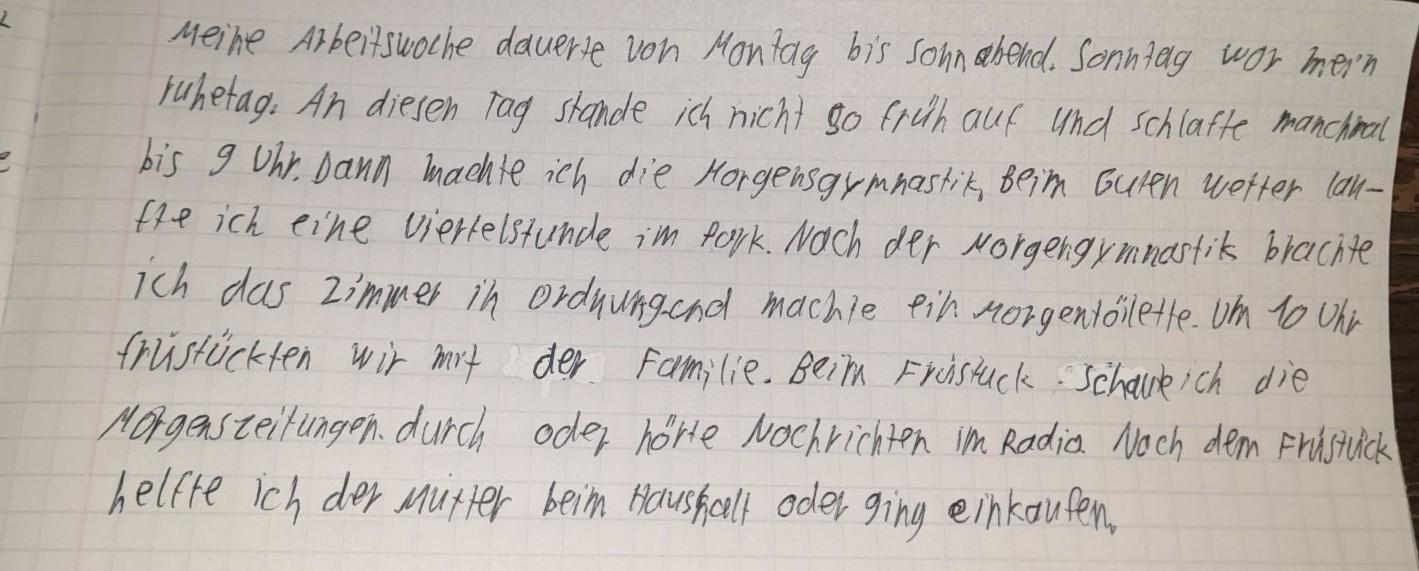 Meine Arbeitswoche dauerte von Montag bis Sonnabend. Sonntag wor mein
ruhetag. An diesen Tag stande ich nicht so früh auf und schlafte manchmal
bis 9 Uhr. Dann machte ich die Morgensgymnastik, Beim Guten wetter lau-
fte ich eine Viertelstunde im Park. Noch der Morgengymnastik brachte
ich das Zimmer in Ordnung end machte ein Morgentöilette. Um 10 Uhr
früstückten wir mit der Familie. Beim Früstuck schaute ich die
Morgenszeitungen. durch oder hörte Nochrichten im Radio. Noch dem Früstück
helfte ich der Mutter beim Haushalt oder ging einkaufen.